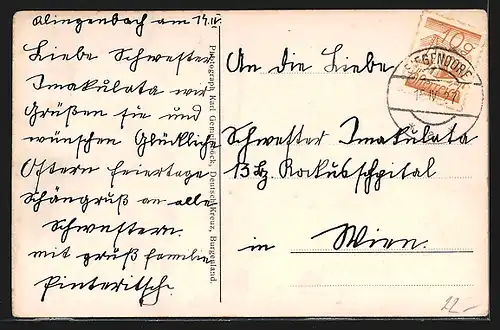 Klingenbach am 14.IV.
Liebe Schwester
Imakulata wir
Grüßen sie und
wünschen Glückliche
Ostern feiertage
Schöngruß an alle
Schwestern.
mit gruß familie
Pinteritsch.
Photograph Karl Deutsch-Kreuz, Burgenland.
An die Liebe
Schwester Imakulata
13 Bz. Rockusschpital
in Wien.
10 g
SIEGENDORF
22.-